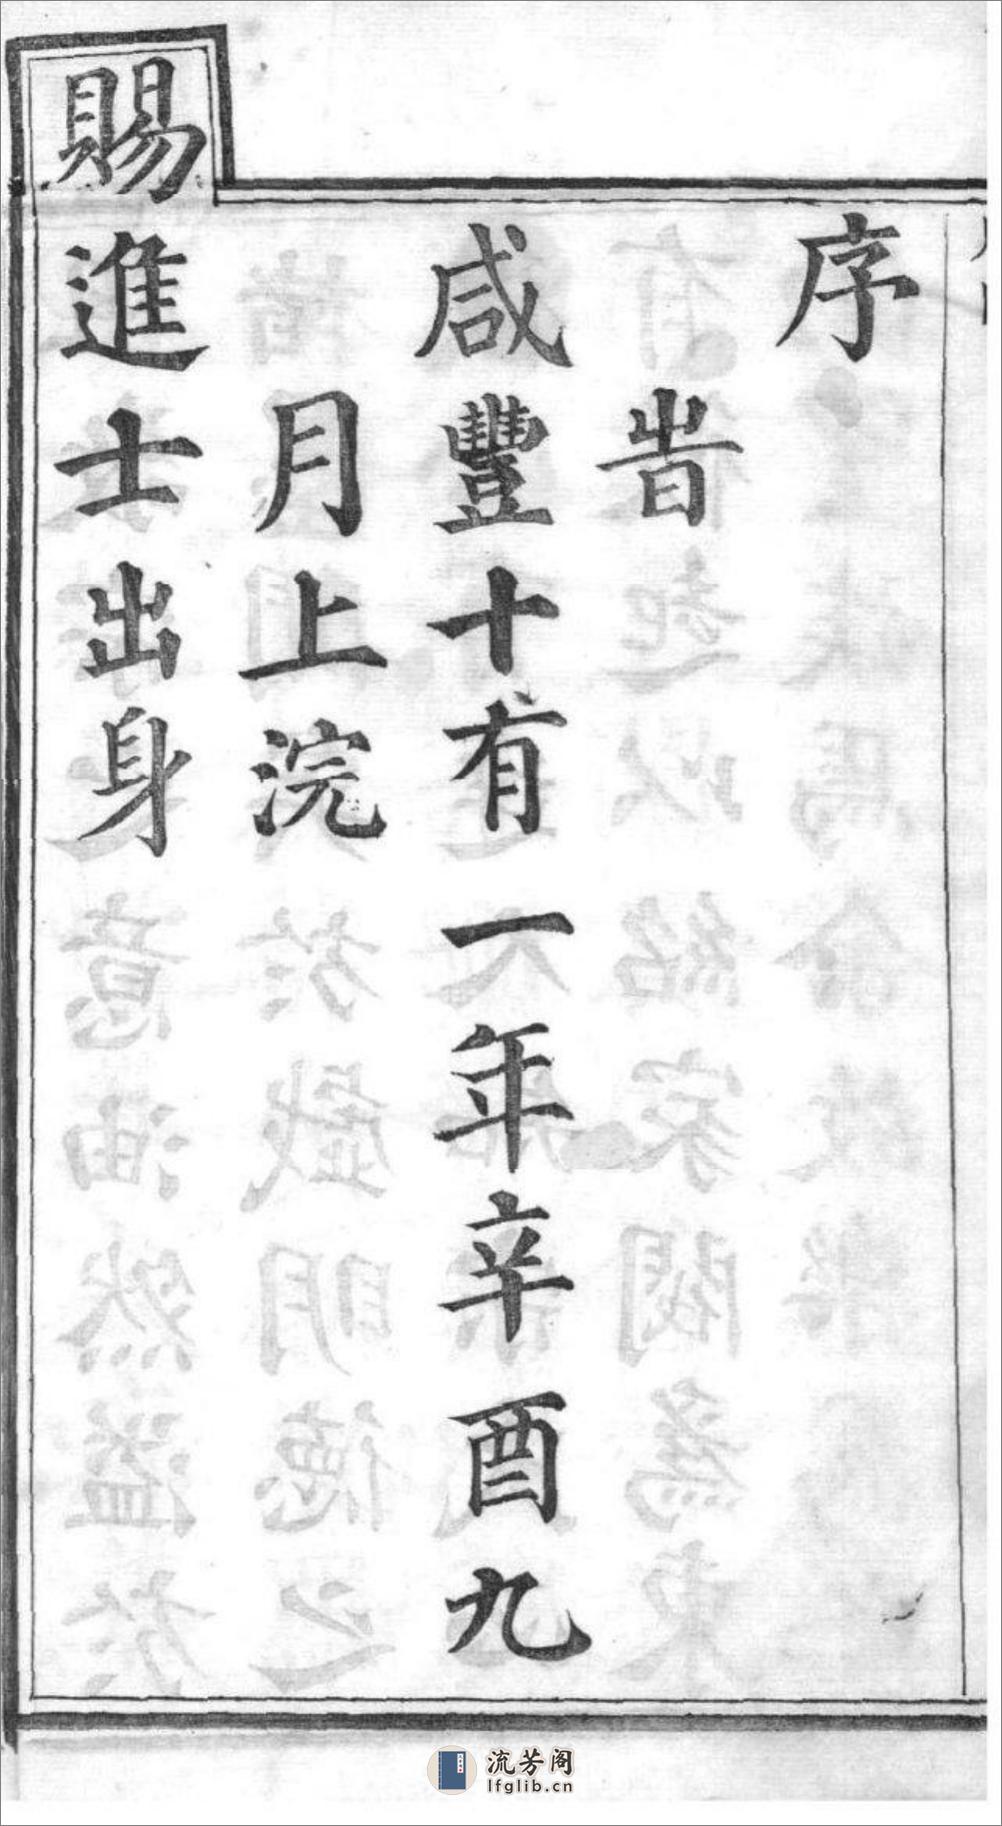 序
旹
咸豐十有一年辛酉九
月上浣
賜進士出身
流芳阁
lfglib.cn